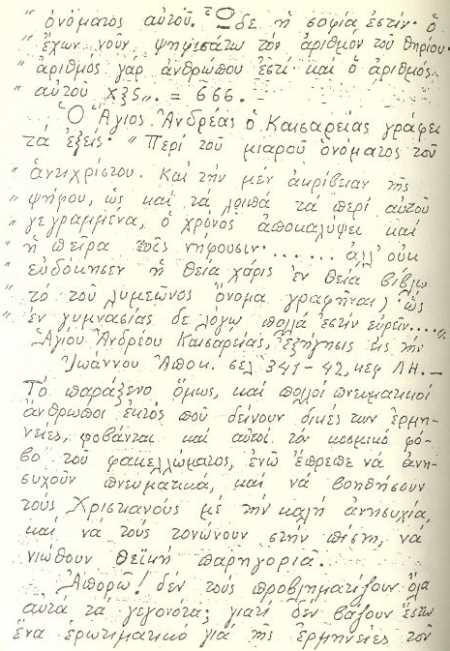 " ὀνόματος αὐτοῦ. Ὧδε ἡ σοφία ἐστίν· ὁ
" ἔχων νοῦν ψηφισάτω τόν ἀριθμόν τοῦ θηρίου·
" ἀριθμός γάρ ἀνθρώπου ἐστί· καί ὁ ἀριθμός
" αὐτοῦ χξς„. = 666. -
Ὁ Ἅγιος Ἀνδρέας ὁ Καισαρείας γράφει
τά ἑξῆς· " Περί τοῦ μιαροῦ ὀνόματος τοῦ
" ἀντιχρίστου. Καί τήν μέν ἀκρίβειαν τῆς
" ψήφου, ὡς καί τά λοιπά τά περί αὐτοῦ
" γεγραμμένα, ὁ χρόνος ἀποκαλύψει καί
" ἡ πεῖρα τοῖς νήφουσιν....... ἀλλ' οὐκ
" εὐδόκησεν ἡ θεία χάρις ἐν θεία βίβλω
" τό τοῦ λυμεῶνος ὄνομα γραφῆναι, ὡς
" ἐν γυμνασίας δε λόγω πολλά ἐστίν εὑρεῖν....„
Ἁγίου Ἀνδρέου Καισαρείας, ἐξήγησις εἰς τήν
Ἰωάννου Ἀποκ. σελ 341-42, κεφ ΛΗ. -
Τό παράξενο ὅμως, καί πολλοί πνευματικοί
ἄνθρωποι ἐκτός πού δίνουν δικές των ἑρμη-
νεῖες, φοβάνται καί αὐτοί τόν κοσμικό φό-
βο τοῦ φακελλώματος, ἐνῶ ἔπρεπε νά ἀνη-
συχοῦν πνευματικά, καί νά βοηθήσουν
τούς Χριστιανούς μέ τήν καλή ἀνησυχία,
καί νά τούς τονώνουν στήν πίστη, νά
νιώθουν θεϊκή παρηγοριά.
Ἀπορῶ! δέν τούς προβληματίζουν ὅλα
αὐτά τά γεγονότα; γιατί δέν βάζουν ἔστω
ἕνα ἐρωτηματικό γιά τῆς ἑρμηνεῖες τοῦ